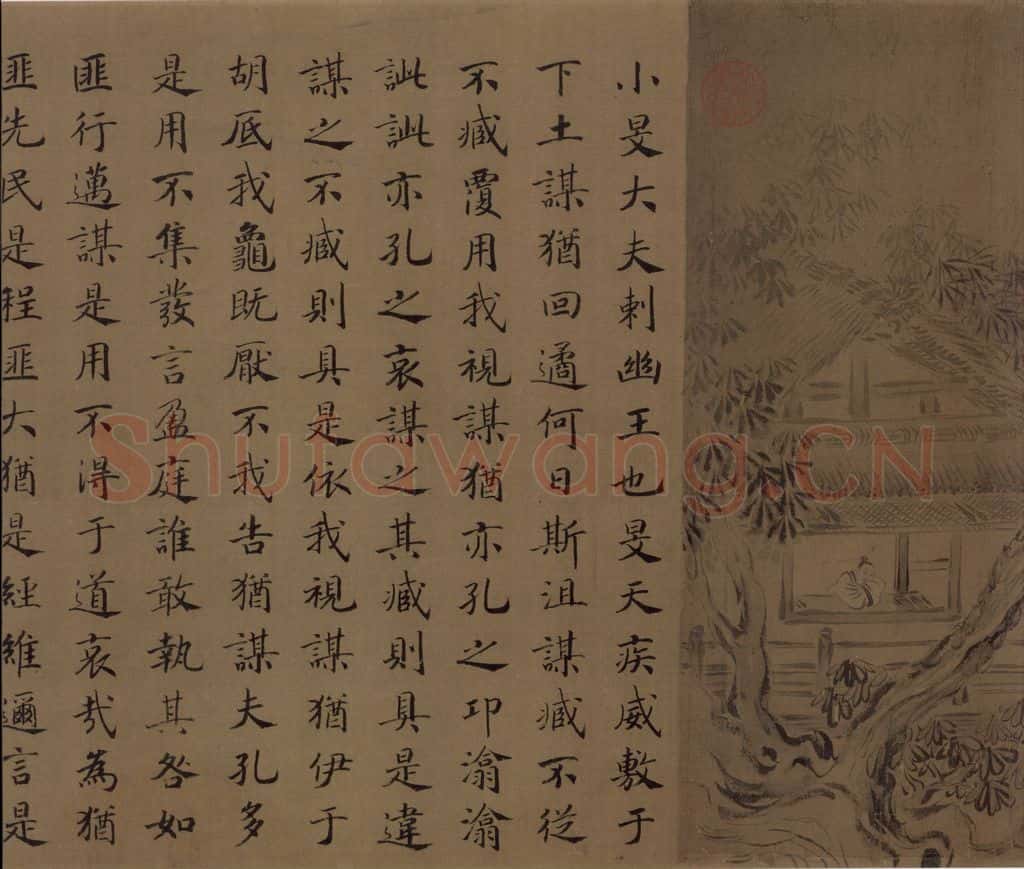 小旻大夫刺幽王也旻天疾威敷于
下土謀猶回遹何日斯沮謀臧不從
不臧覆用我視謀猶亦孔之邛潝潝
訿訿亦孔之哀謀之其臧則具是違
謀之不臧則具是依我視謀猶伊于
胡厎我龜既厭不我告猶謀夫孔多
是用不集發言盈庭誰敢執其咎如
匪行邁謀是用不得于道哀哉為猶
匪先民是程匪大猶是經維邇言是
Shufawang.CN